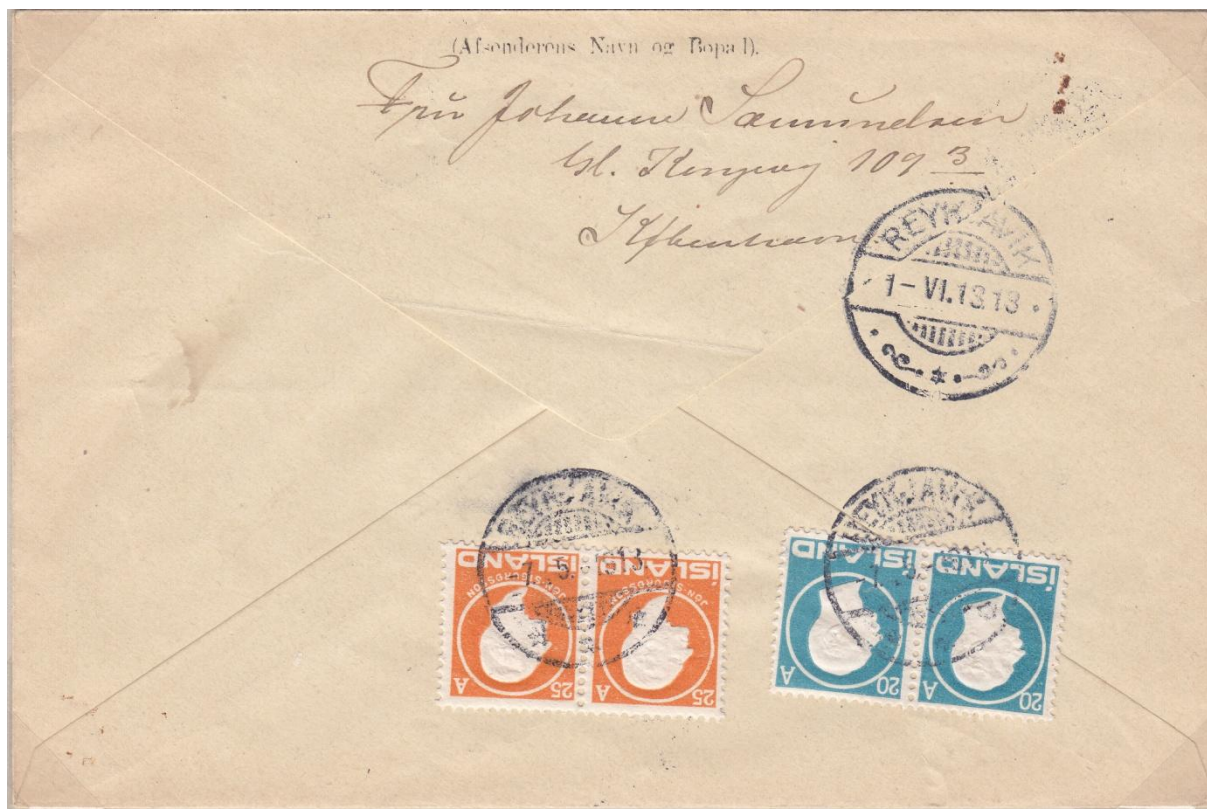 (Afsenderens Navn og Bopæl).
Fru Johanne Sæmundsen
Gl. Kongevej 109 3
Kjøbenhavn
REYKJAVIK
1-VI.13.13
REYKJAVIK
REYKJAVIK
ÍSLAND ÍSLAND
JÓN·SIGURÐSSON JÓN·SIGURÐSSON
25 A 25 A
ÍSLAND ÍSLAND
20 A 20 A